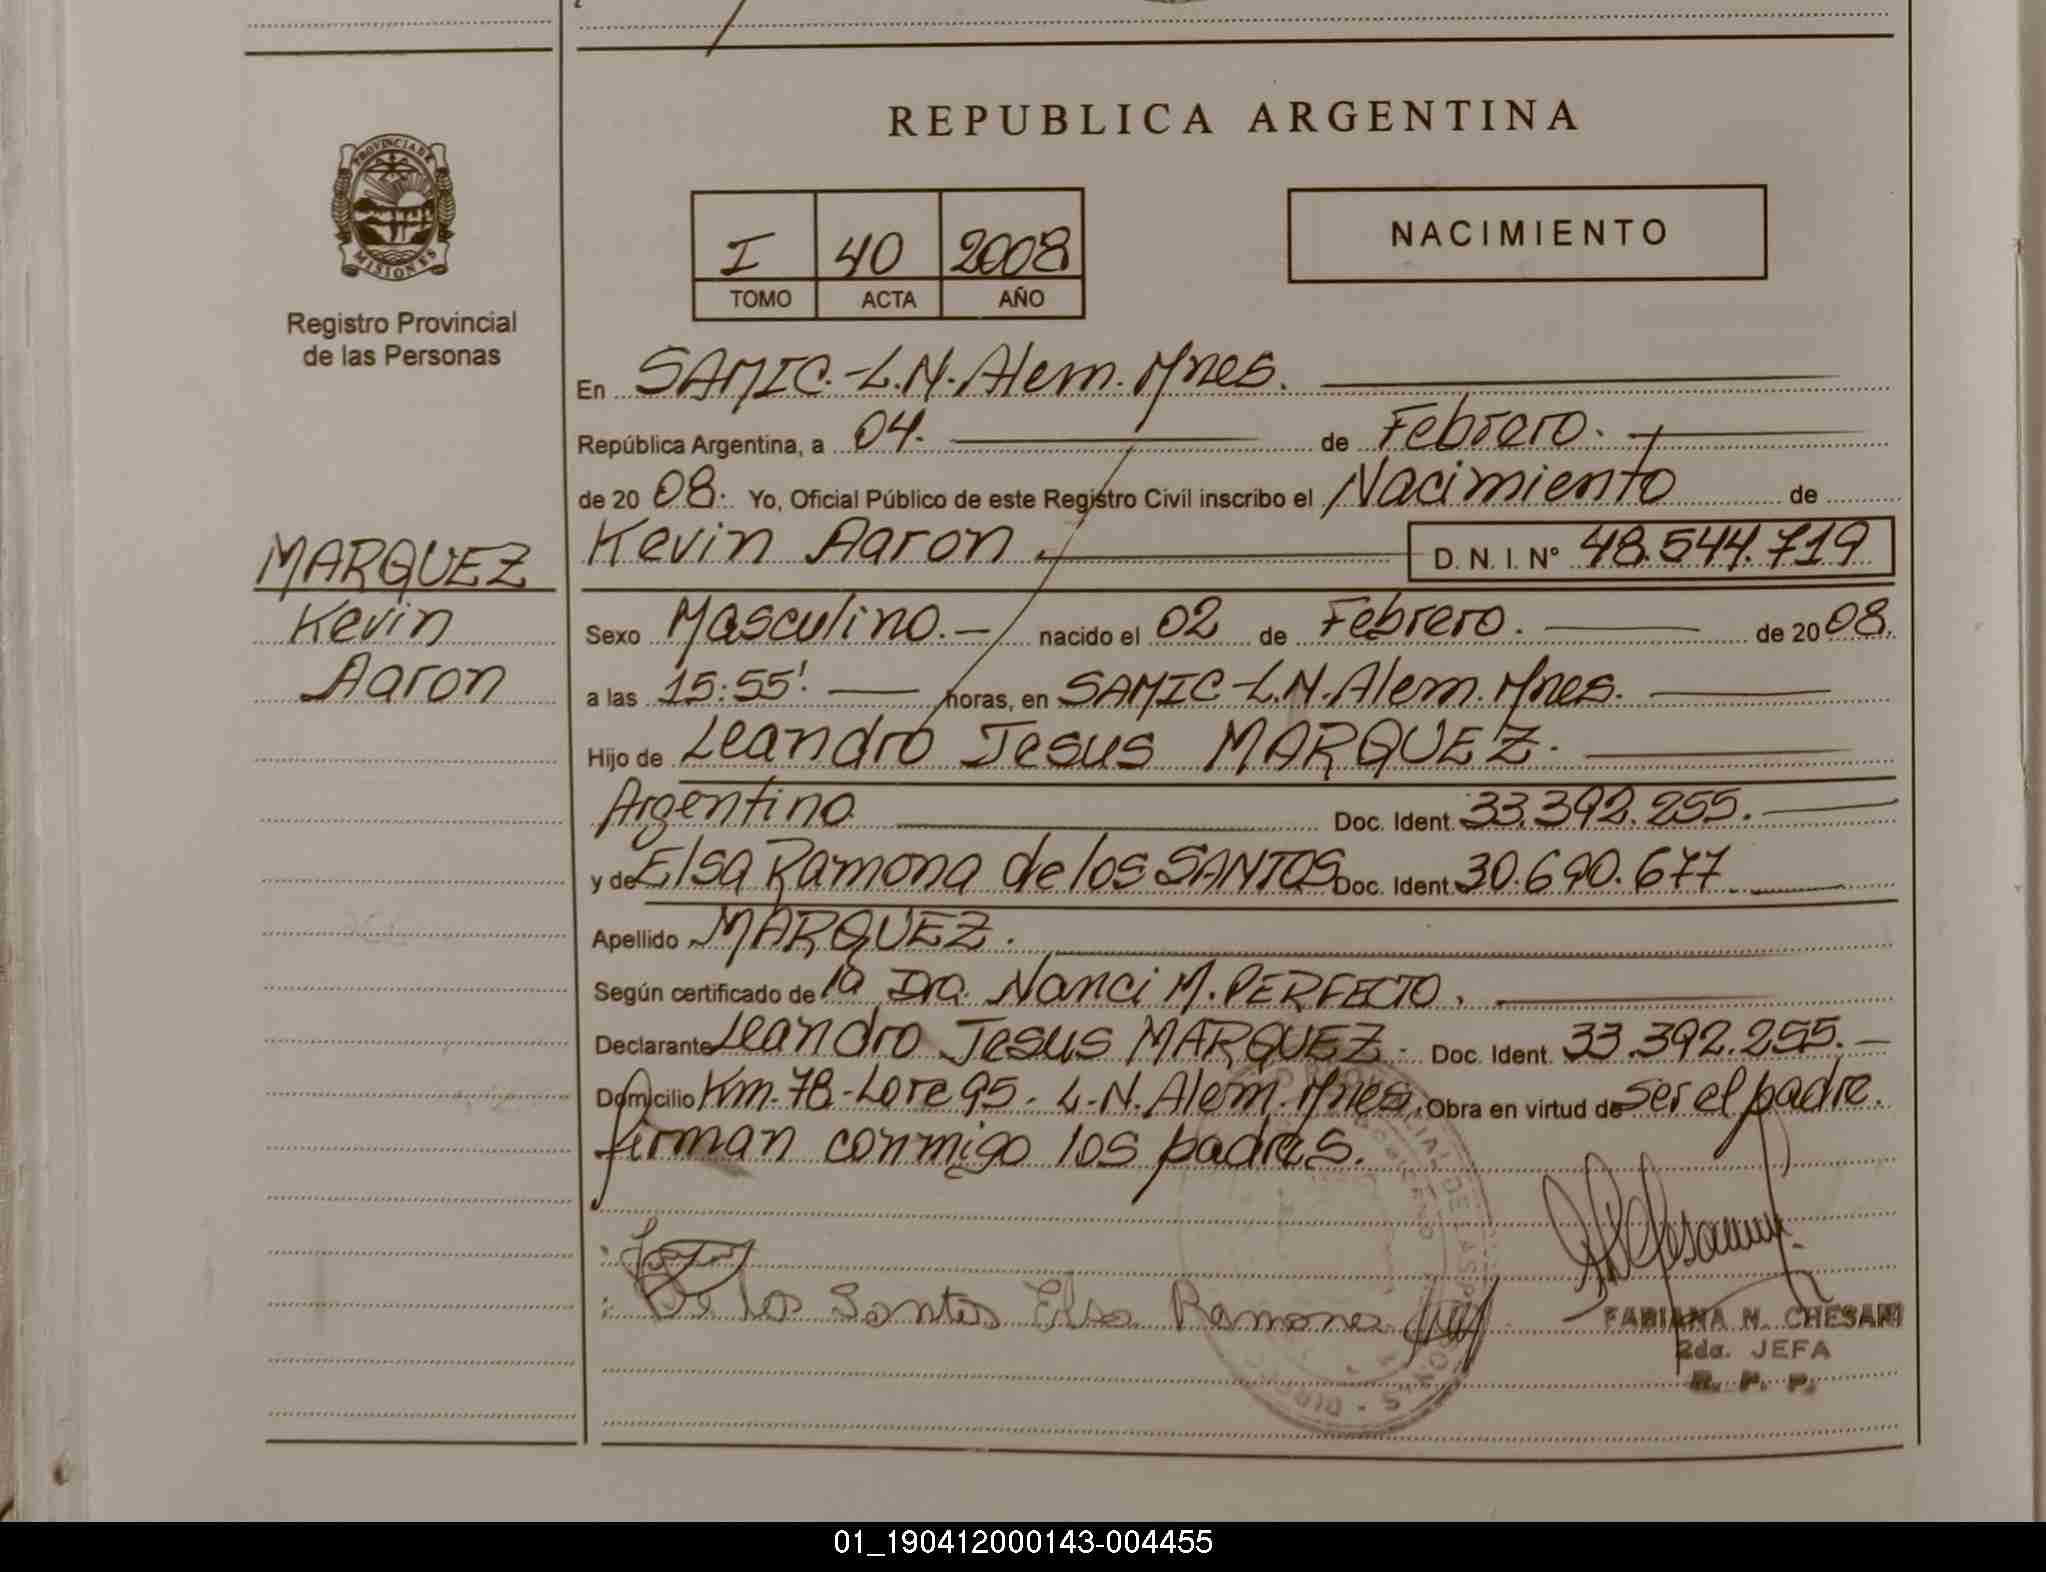 REPUBLICA ARGENTINA
PROVINCIA DE
MISIONES
Registro Provincial
de las Personas
I 40 2008
TOMO ACTA AÑO
NACIMIENTO
En SAMIC.-L.N.Alem.Mnes.
República Argentina, a 04. de Febrero.
de 20 08. Yo, Oficial Público de este Registro Civil inscribo el Nacimiento de
MARQUEZ
Kevin
Aaron
Kevin Aaron D. N. I. N° 48.544.719
Sexo Masculino.- nacido el 02 de Febrero. de 20 08.
a las 15:55'. horas, en SAMIC-L.N.Alem.Mnes.
Hijo de Leandro Jesus MARQUEZ.
Argentino Doc. Ident. 33.392.255.
y de Elsa Ramona de los SANTOS Doc. Ident. 30.690.677
Apellido MARQUEZ.
Según certificado de la Dra. Nanci M. PERFECTO.
Declarante Leandro Jesus MARQUEZ. Doc. Ident. 33.392.255.-
Domicilio Km.78-Lote 95. L.N.Alem.Mnes. Obra en virtud de ser el padre.
firman conmigo los padres.
De los Santos Elsa Ramona
FABIANA N. CHESANI
2da. JEFA
R. P. P.
01_190412000143-004455